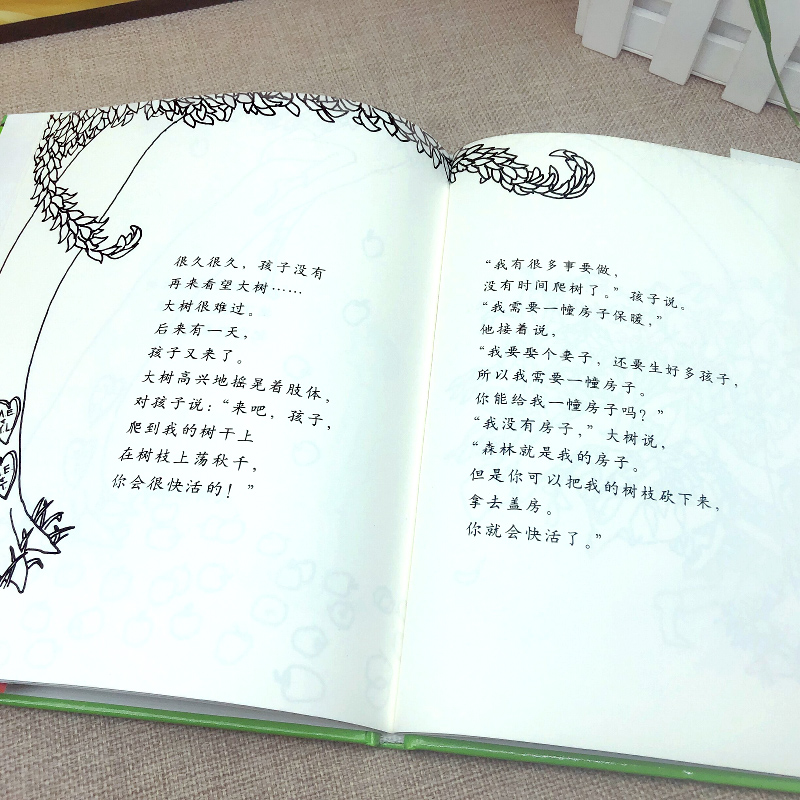 很久很久，孩子没有
再来看望大树……
大树很难过。
后来有一天，
孩子又来了。
大树高兴地摇晃着肢体，
对孩子说：“来吧，孩子，
爬到我的树干上
在树枝上荡秋千，
你会很快活的！”
“我有很多事要做，
没有时间爬树了。”孩子说。
“我需要一幢房子保暖，”
他接着说，
“我要娶个妻子，还要生好多孩子，
所以我需要一幢房子。
你能给我一幢房子吗？”
“我没有房子，”大树说，
“森林就是我的房子。
但是你可以把我的树枝砍下来，
拿去盖房。
你就会快活了。”